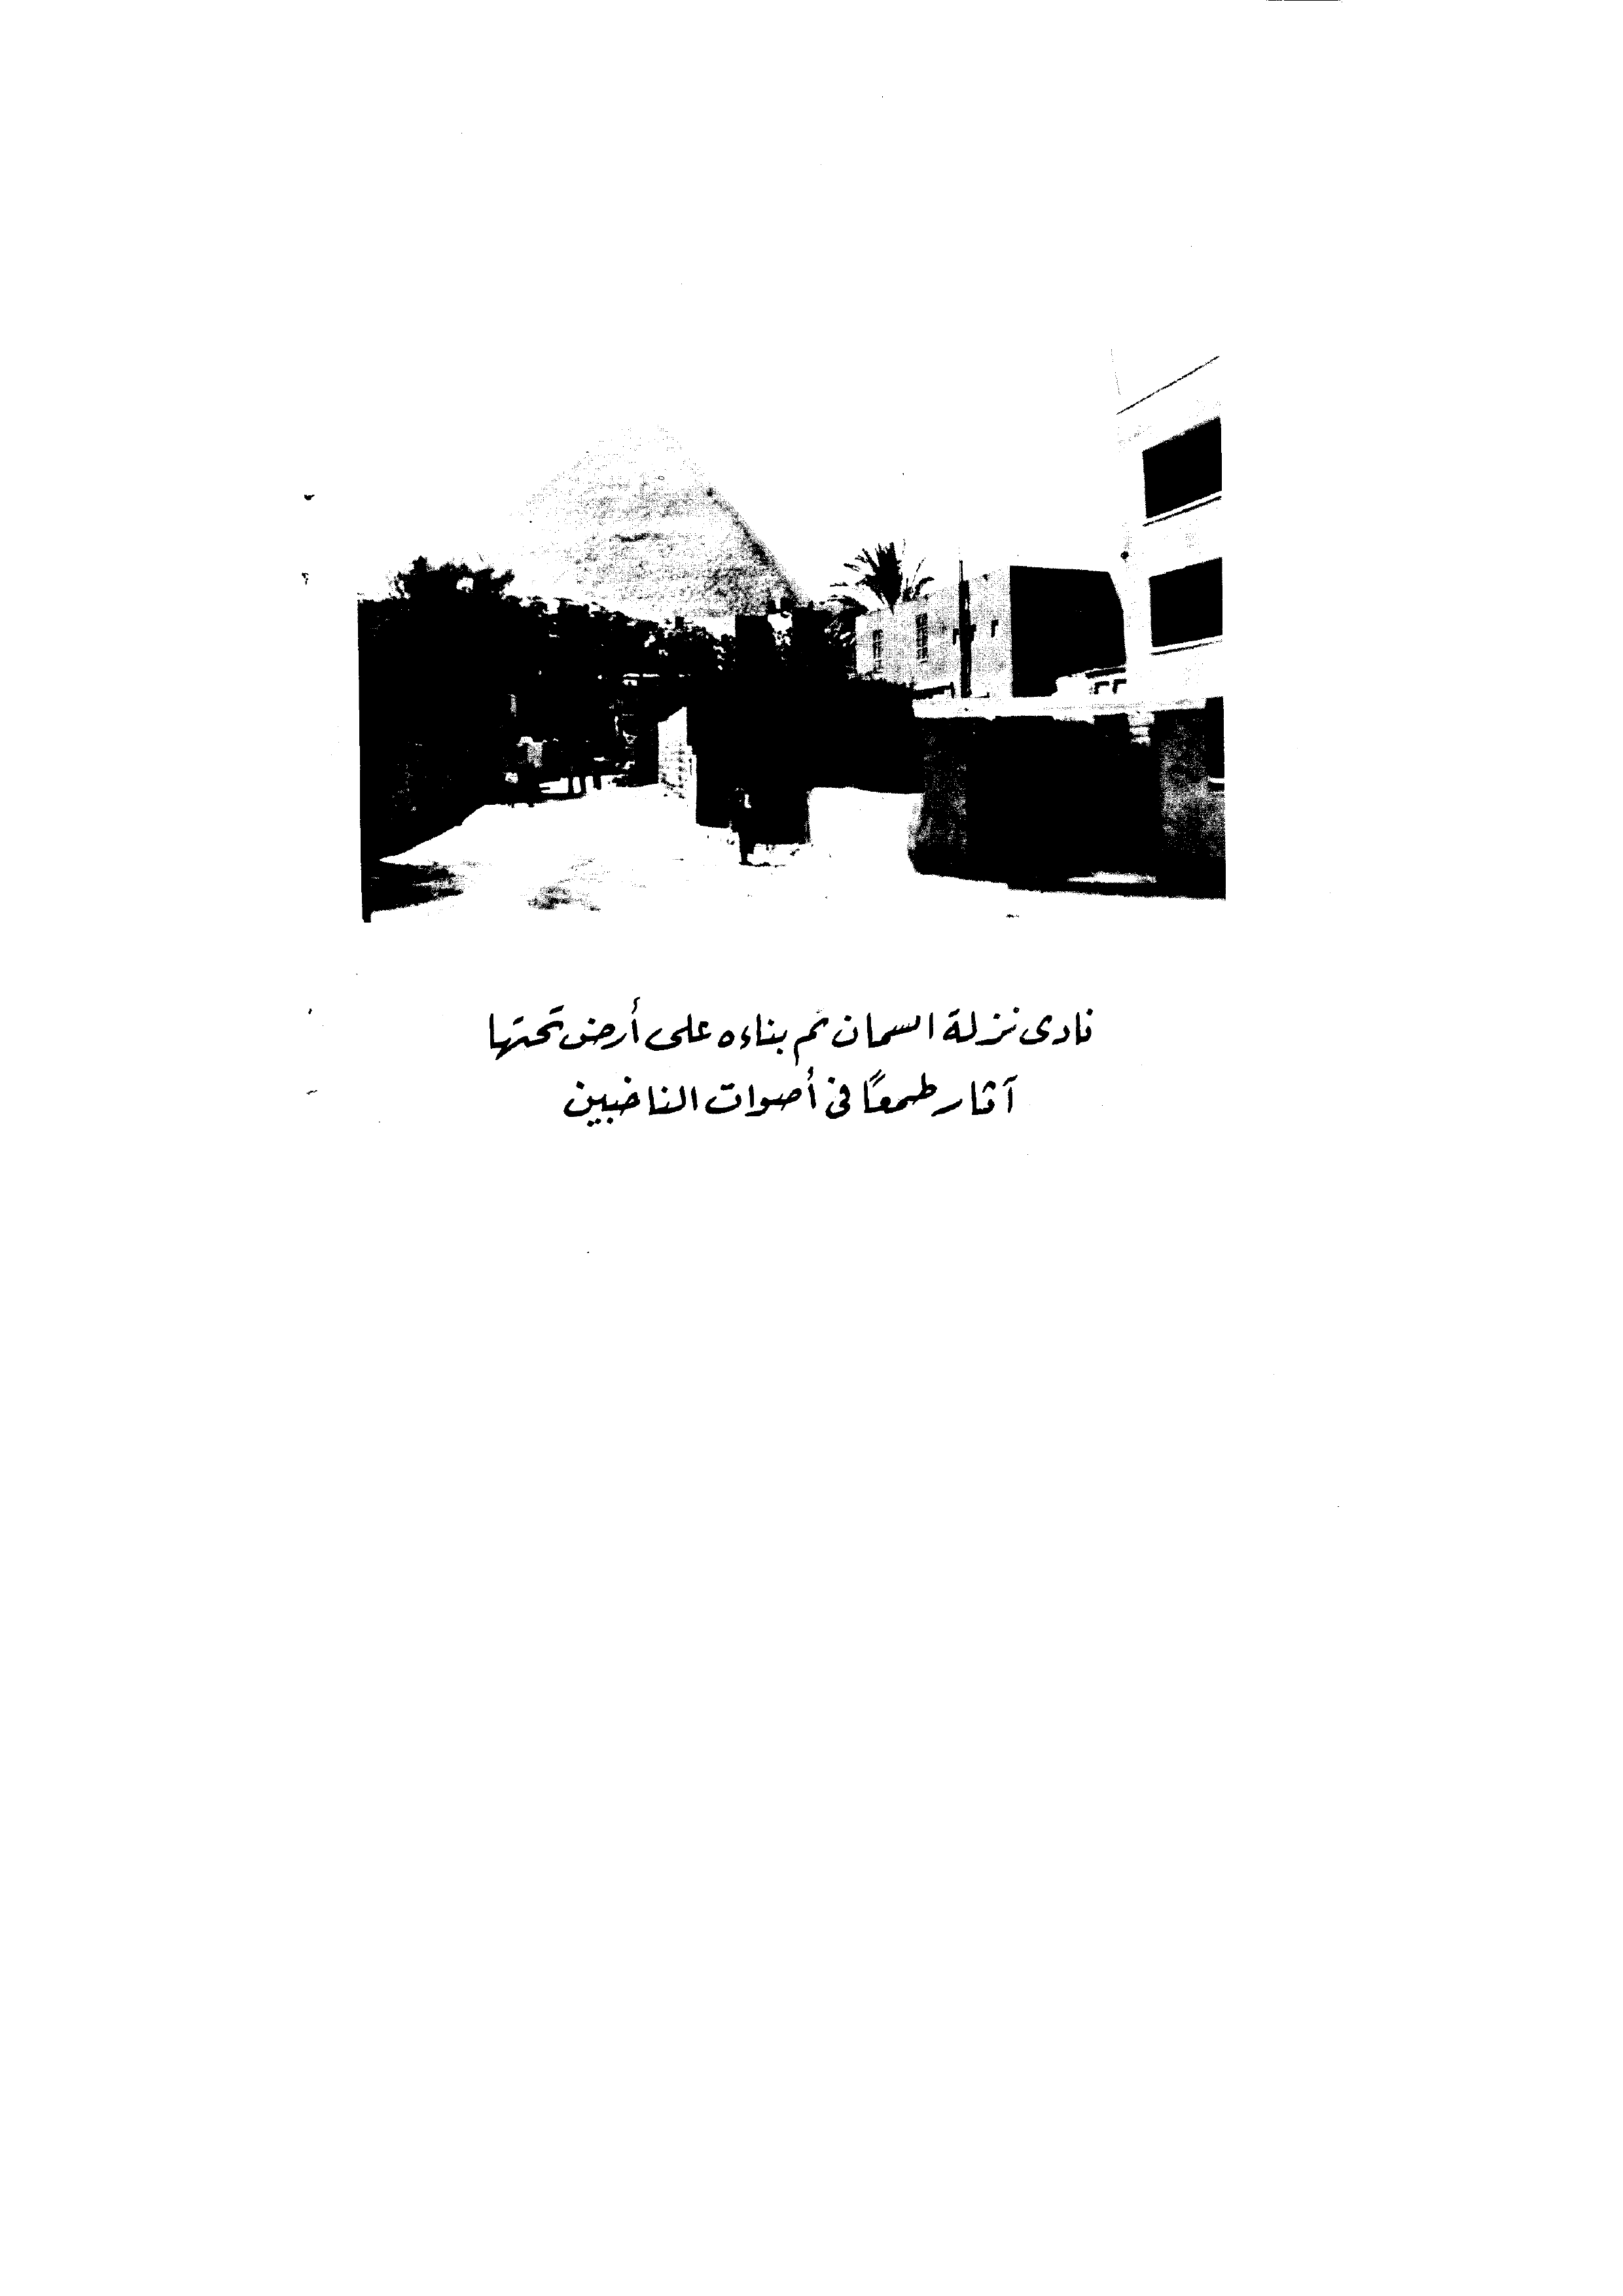 نادى نزلة السمان تم بناءه على أرض تحتها
آثار طمعًا فى أصوات الناخبين